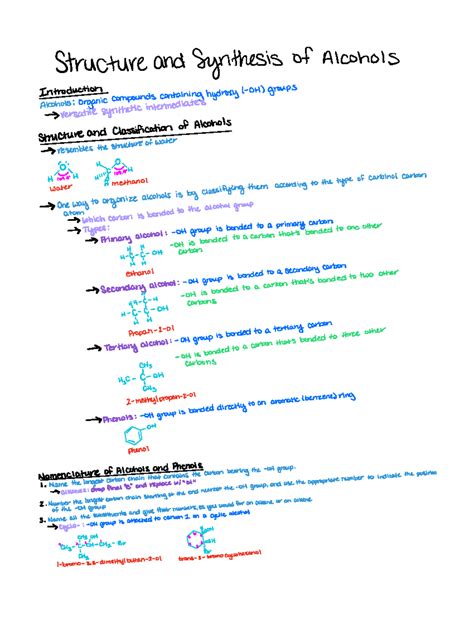 Structure and Synthesis of Alcohols
Introduction
Alcohols: Organic compounds containing hydroxy (-OH) groups
→ Versatile synthetic intermediates
Structure and Classification of Alcohols
→ Resembles the structure of water
water
methanol
→ One way to organize alcohols is by classifying them according to the type of carbinol carbon
atom
→ Which carbon is bonded to the alcohol group
→ Types:
→ Primary alcohol: -OH group is bonded to a primary carbon
-OH is bonded to a carbon that's bonded to one other
carbon
ethanol
→ Secondary alcohol: -OH group is bonded to a secondary carbon
-OH is bonded to a carbon that's bonded to two other
carbons
Propan-2-ol
→ Tertiary alcohol: -OH group is bonded to a tertiary carbon
-OH is bonded to a carbon that's bonded to three other
carbons
CH₃
H₃C-C-OH
CH₃
2-methylpropan-2-ol
→ Phenols: -OH group is bonded directly to an aromatic (benzene) ring
OH
phenol
Nomenclature of Alcohols and Phenols
1. Name the longest carbon chain that contains the carbon bearing the -OH group.
drop final "e" and replace w/ "ol"
2. Number the longest carbon chain starting at the end nearest the -OH group, and use the appropriate number to indicate the position
of the -OH group
3. Name all the substituents and give their numbers, as you would for an alkane or an alkene
→ Cyclo-: -OH group is attached to carbon 1 on a cyclic alcohol
1-bromo-3,3-dimethylbutan-2-ol
trans-2-bromocyclohexanol